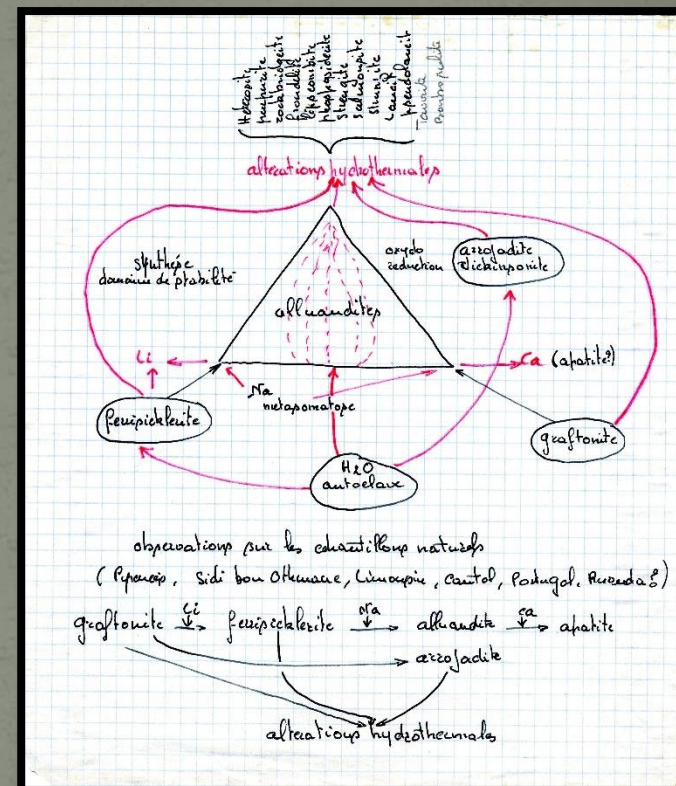 Hétérosite
purpurite
rockbridgeite
frondélite
lipscombite
phosphosidérite
strengite
salmonsite
stewartite
Laueit
pseudolaueit
Tavorite
altérations hydrothermales
synthèse
domaine de stabilité
oxydo
réduction
arrojadite
dickinsonite
alluaudites
Li
Ca (apatite?)
Na
métasomatose
ferrisicklérite
graftonite
H2O
autoclave
observations sur les échantillons naturels
(Pyrénées, Sidi bou Othmane, Limousin, Cantal, Portugal, Rwanda?)
graftonite Li → ferrisicklérite Na → alluaudite Ca → apatite
→ arrojadite
altérations hydrothermales